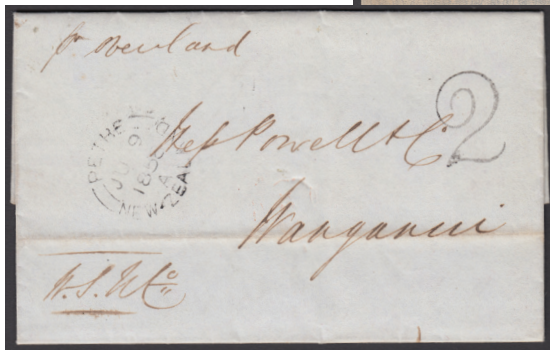 pr Overland
PETRE
JU 9
185
A
NEW-ZEALAND
2
Messrs Powell & Co
Wanganui
W.S.&Co